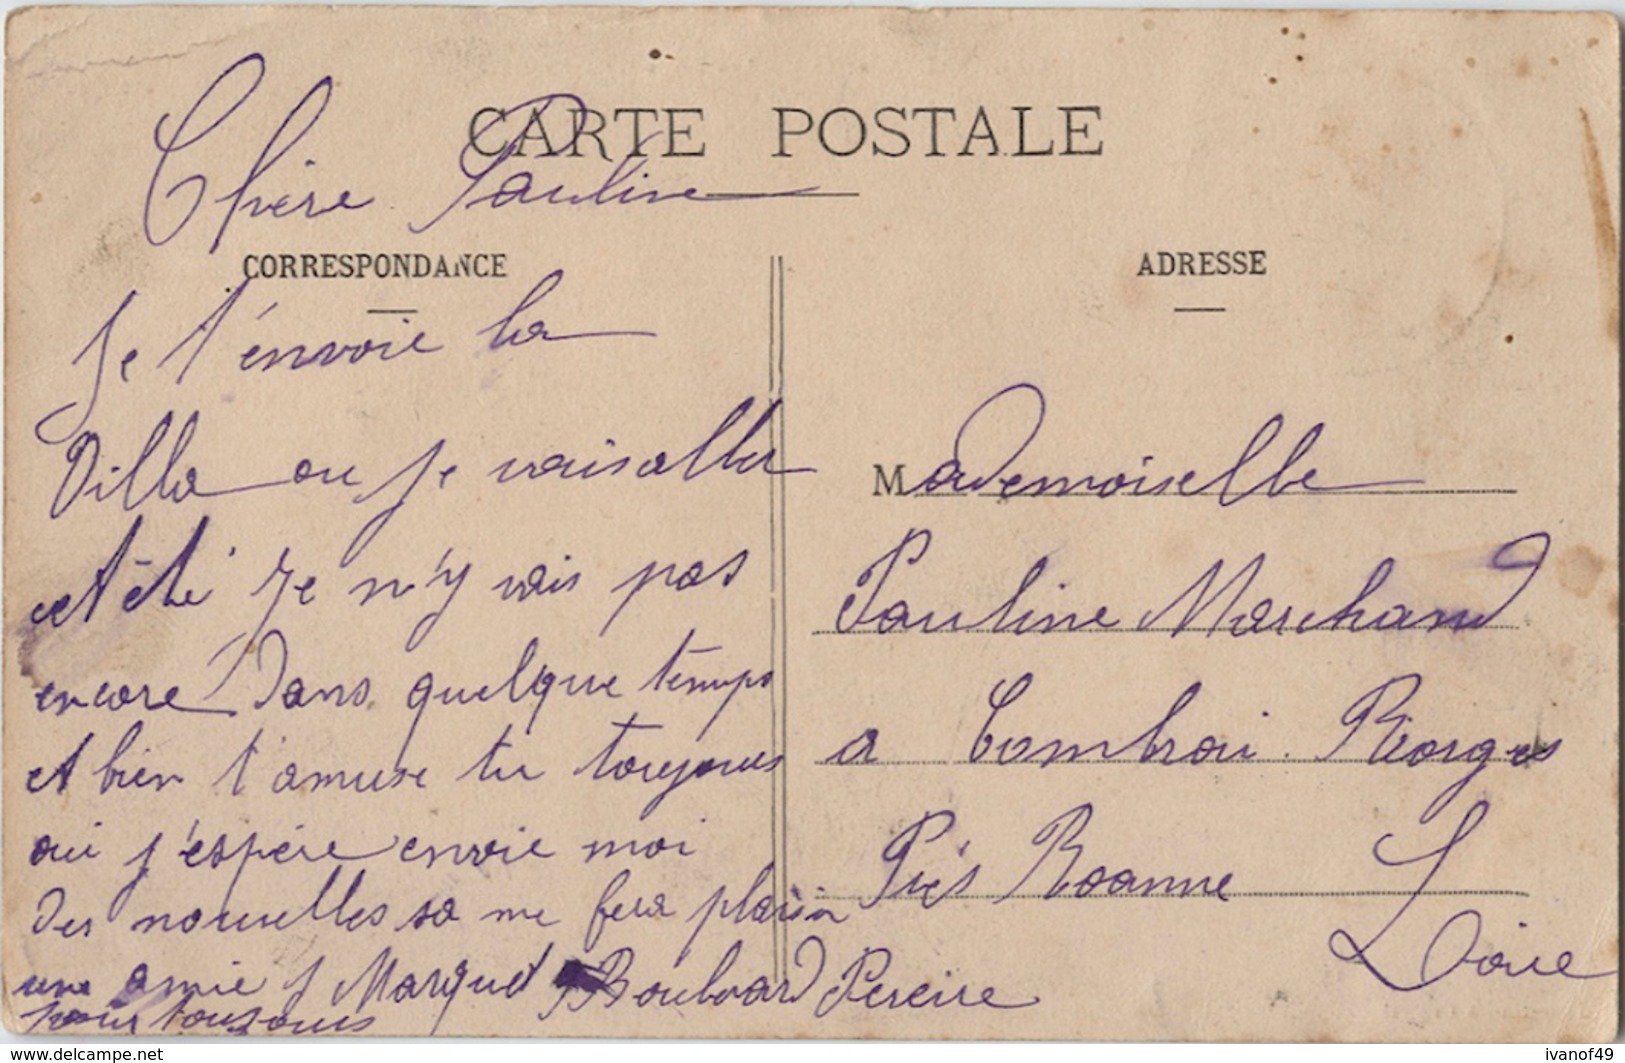 CARTE POSTALE
Chère Pauline
CORRESPONDANCE
Je t'envoie la
Villa ou je vais aller
cet été Je n'y vais pas
encore Dans quelque temps
et bien t'amuse tu toujours
oui j'espère envoie moi
des nouvelles sa me fera plaisir
une amie J Marquet Boulvard Pereire
pour toujours
ADRESSE
Mademoiselle
Pauline Marchand
a Combrai Riorges
Près Roanne
Loire
www.delcampe.net
ivanof49